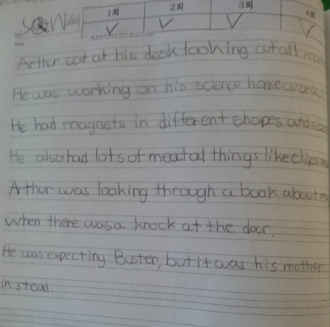 1회 2회 3회
Arthur sat at his desk looking at all
He was working on his science homework
He had magnets in different shapes and
He also had lots of meatal things like clips
Arthur was looking through a book about
when there was a knock at the door.
He was expecting Buster, but it was his mother
in stead.